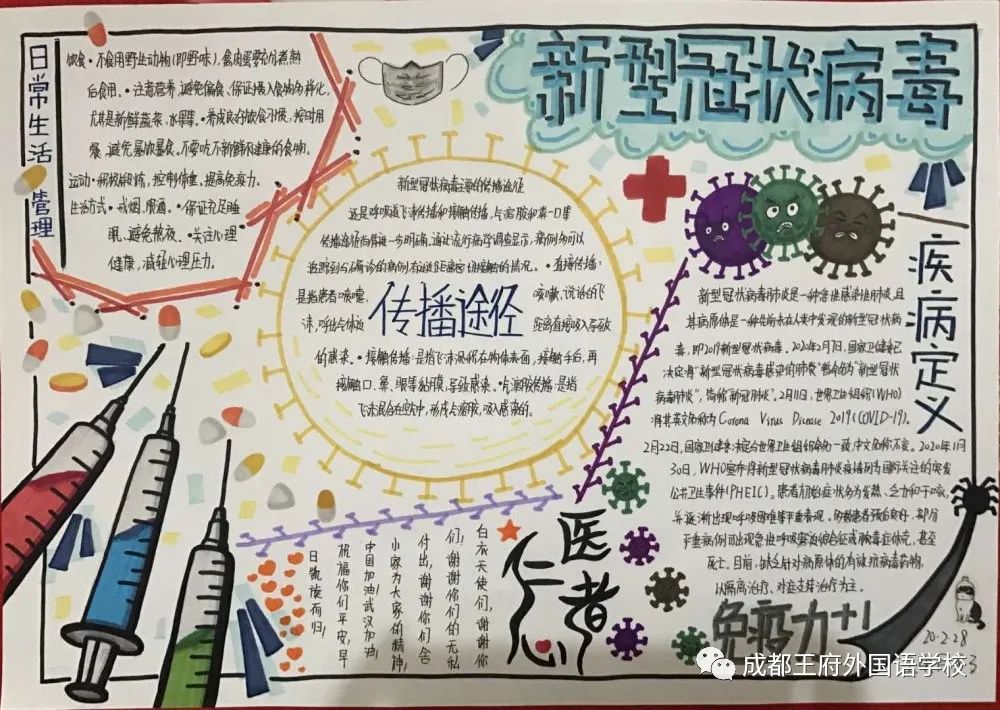 新型冠状病毒
日常生活管理
饮食·不食用野生动物(即野味)，禽肉蛋要充分煮熟
后食用。·注意营养，避免偏食，保证摄入食物多样化，
尤其是新鲜蔬菜、水果等。·养成良好饮食习惯，按时用
餐，避免暴饮暴食。不要吃不新鲜不健康的食物。
运动·积极锻炼，控制体重，提高免疫力。
生活方式·戒烟、限酒。·保证充足睡
眠，避免熬夜。·关注心理
健康，减轻心理压力。
传播途径
新型冠状病毒主要的传播途径
还是呼吸道飞沫传播和接触传播，气溶胶和粪—口等
传播途径尚待进一步明确。通过流行病学调查显示，病例多可以
追踪到与确诊的病例有过近距离密切接触的情况。·直接传播：
是指患者喷嚏、咳嗽、说话的飞
沫，呼出气体近距离直接吸入导致
的感染。·接触传播：是指飞沫沉积在物体表面，接触手后，再
接触口、鼻、眼等黏膜，导致感染。·气溶胶传播：是指
飞沫混合在空气中，形成气溶胶，吸入感染的。
疾病定义
新型冠状病毒肺炎是一种急性感染性肺炎，且
其病原体是一种先前未在人类中发现的新型冠状病
毒，即2019新型冠状病毒。2020年2月7日，国家卫健委
决定将“新型冠状病毒感染的肺炎”暂命名为“新型冠状
病毒肺炎”，简称“新冠肺炎”。2月11日，世界卫生组织(WHO)
将其英文名称为Corona Virus Disease 2019(COVID-19)。
2月22日，国家卫健委决定与世界卫生组织命名一致，中文名称不变。2020年1月
30日，WHO宣布将新型冠状病毒肺炎疫情列为国际关注的突发
公共卫生事件(PHEIC)。患者初始症状多为发热、乏力和干咳，
并逐渐出现呼吸困难等严重表现。多数患者预后良好，部分
严重病例可出现急性呼吸窘迫综合征或脓毒症休克，甚至
死亡。目前，缺乏针对病原体的有效抗病毒药物，
以隔离治疗、对症支持治疗为主。
白衣天使们，谢谢你
们！谢谢你们的无私
付出，谢谢你们舍
小家为大家的精神！
中国加油！武汉加油！
祝福你们平安，早
日凯旋而归！
医者
仁心
免疫力+1
20·2·28
成都王府外国语学校